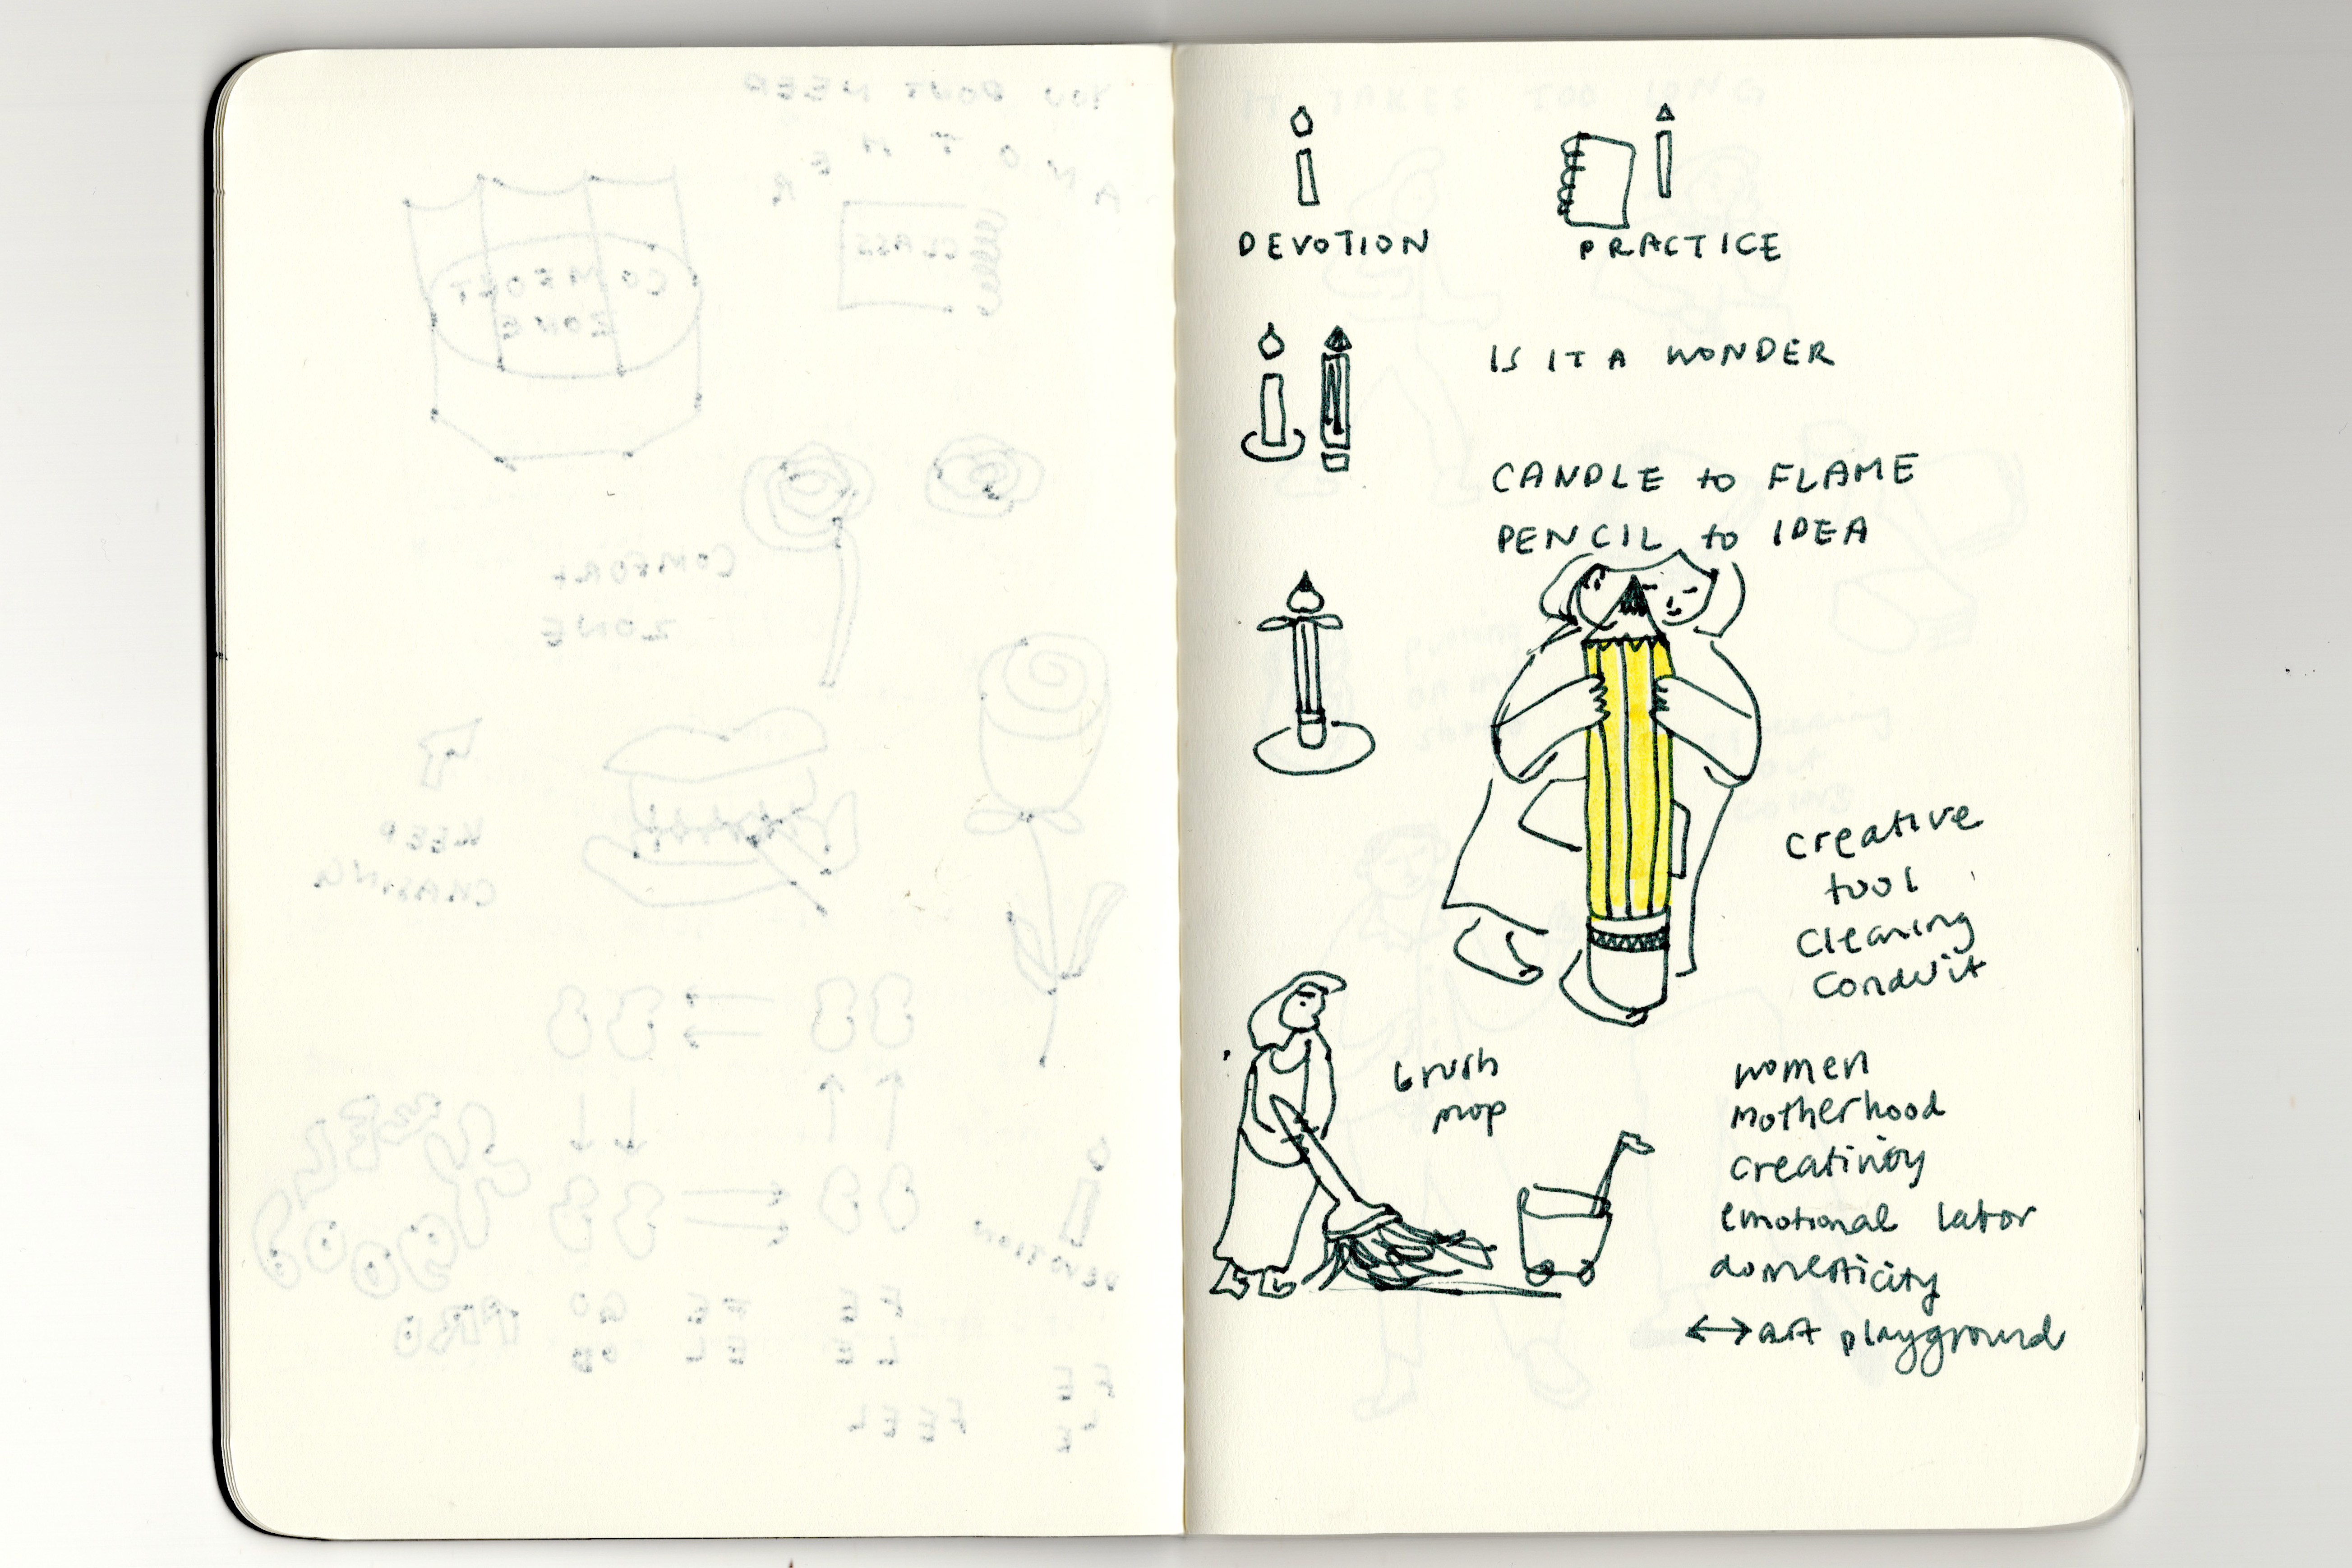 DEVOTION
PRACTICE
IS IT A WONDER
CANDLE to FLAME
PENCIL to IDEA
creative
tool
cleaning
conduit
brush
mop
women
motherhood
creativity
emotional labor
domesticity
↔ art playground